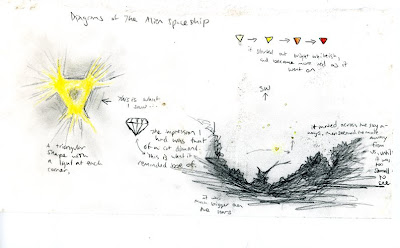 Diagrams of the Alien Spaceship
it started out bright whiteish,
and became more red as it
went on
This is what
I saw
SW
a triangular
shape with
a light at each
corner,
The impression I
had was that
of a cut diamond.
This is what it
reminded
me of.
it moved across the sky a
ways, then seemed to move
away
from
us, until
it was
too
small
to
see
it was
much bigger than
the stars